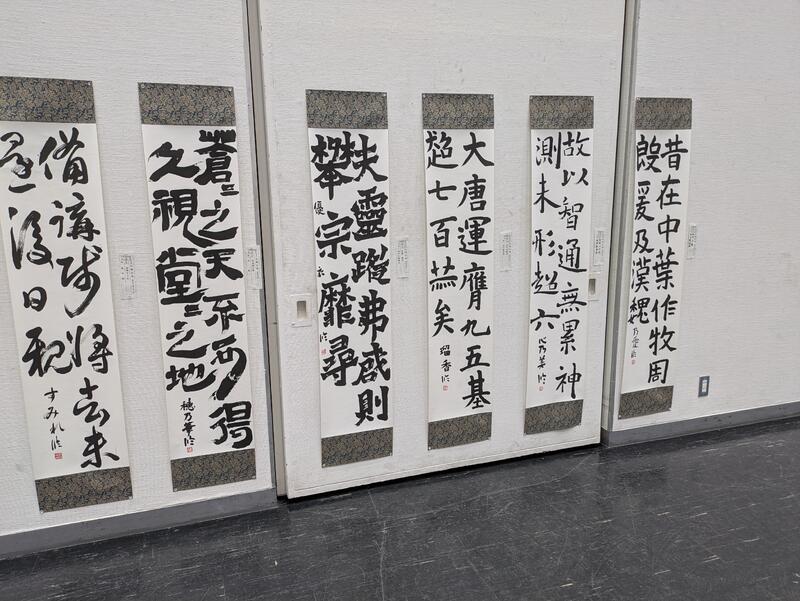 昔在中葉作牧周
殷爰及漢魏 乃愛臨
故以智通無累神
測未形超六
大唐運膺九五基
超七百赫矣 瑠香臨
夫靈蹤弗啓則
攀宗靡尋 優衣臨
蒼〻之天不可得
久視堂〻之地 穂乃華臨
備講師將去未
還後日 すみれ臨